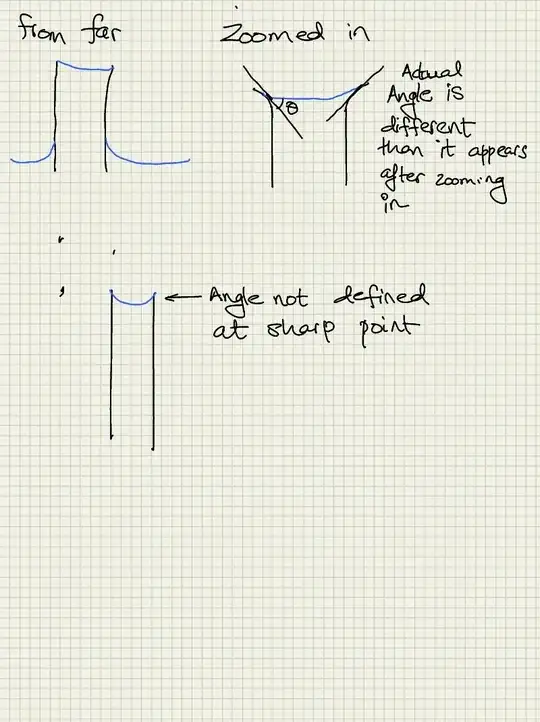 from far
Zoomed in
Actual
Angle is
different
than it appears
after zooming
in
θ
Angle not defined
at sharp point